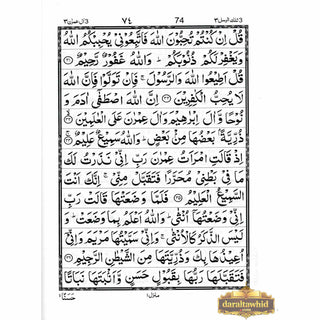 تلك الرسل ٣ ٧٤ 74 ال عمرٰن ٣
قُلْ اِنْ كُنْتُمْ تُحِبُّوْنَ اللّٰهَ فَاتَّبِعُوْنِیْ یُحْبِبْكُمُ اللّٰهُ
وَیَغْفِرْ لَكُمْ ذُنُوْبَكُمْ ؕ وَاللّٰهُ غَفُوْرٌ رَّحِیْمٌ ﴿۳۱﴾
قُلْ اَطِیْعُوا اللّٰهَ وَالرَّسُوْلَ ۚ فَاِنْ تَوَلَّوْا فَاِنَّ اللّٰهَ
لَا یُحِبُّ الْكٰفِرِیْنَ ﴿۳۲﴾ اِنَّ اللّٰهَ اصْطَفٰۤی اٰدَمَ وَ
نُوْحًا وَّ اٰلَ اِبْرٰهِیْمَ وَ اٰلَ عِمْرٰنَ عَلَی الْعٰلَمِیْنَ ﴿۳۳﴾
ذُرِّیَّةًۢ بَعْضُهَا مِنْۢ بَعْضٍ ؕ وَاللّٰهُ سَمِیْعٌ عَلِیْمٌ ﴿۳۴﴾
اِذْ قَالَتِ امْرَاَتُ عِمْرٰنَ رَبِّ اِنِّیْ نَذَرْتُ لَكَ
مَا فِیْ بَطْنِیْ مُحَرَّرًا فَتَقَبَّلْ مِنِّیْ ۚ اِنَّكَ اَنْتَ
السَّمِیْعُ الْعَلِیْمُ ﴿۳۵﴾ فَلَمَّا وَضَعَتْهَا قَالَتْ رَبِّ
اِنِّیْ وَضَعْتُهَاۤ اُنْثٰی ؕ وَاللّٰهُ اَعْلَمُ بِمَا وَضَعَتْ ؕ وَ
لَیْسَ الذَّكَرُ كَالْاُنْثٰی ۚ وَاِنِّیْ سَمَّیْتُهَا مَرْیَمَ وَاِنِّیْۤ
اُعِیْذُهَا بِكَ وَذُرِّیَّتَهَا مِنَ الشَّیْطٰنِ الرَّجِیْمِ ﴿۳۶﴾
فَتَقَبَّلَهَا رَبُّهَا بِقَبُوْلٍ حَسَنٍ وَّ اَنْۢبَتَهَا نَبَاتًا
منزل ۱ حَسَنًا
daraltawhid